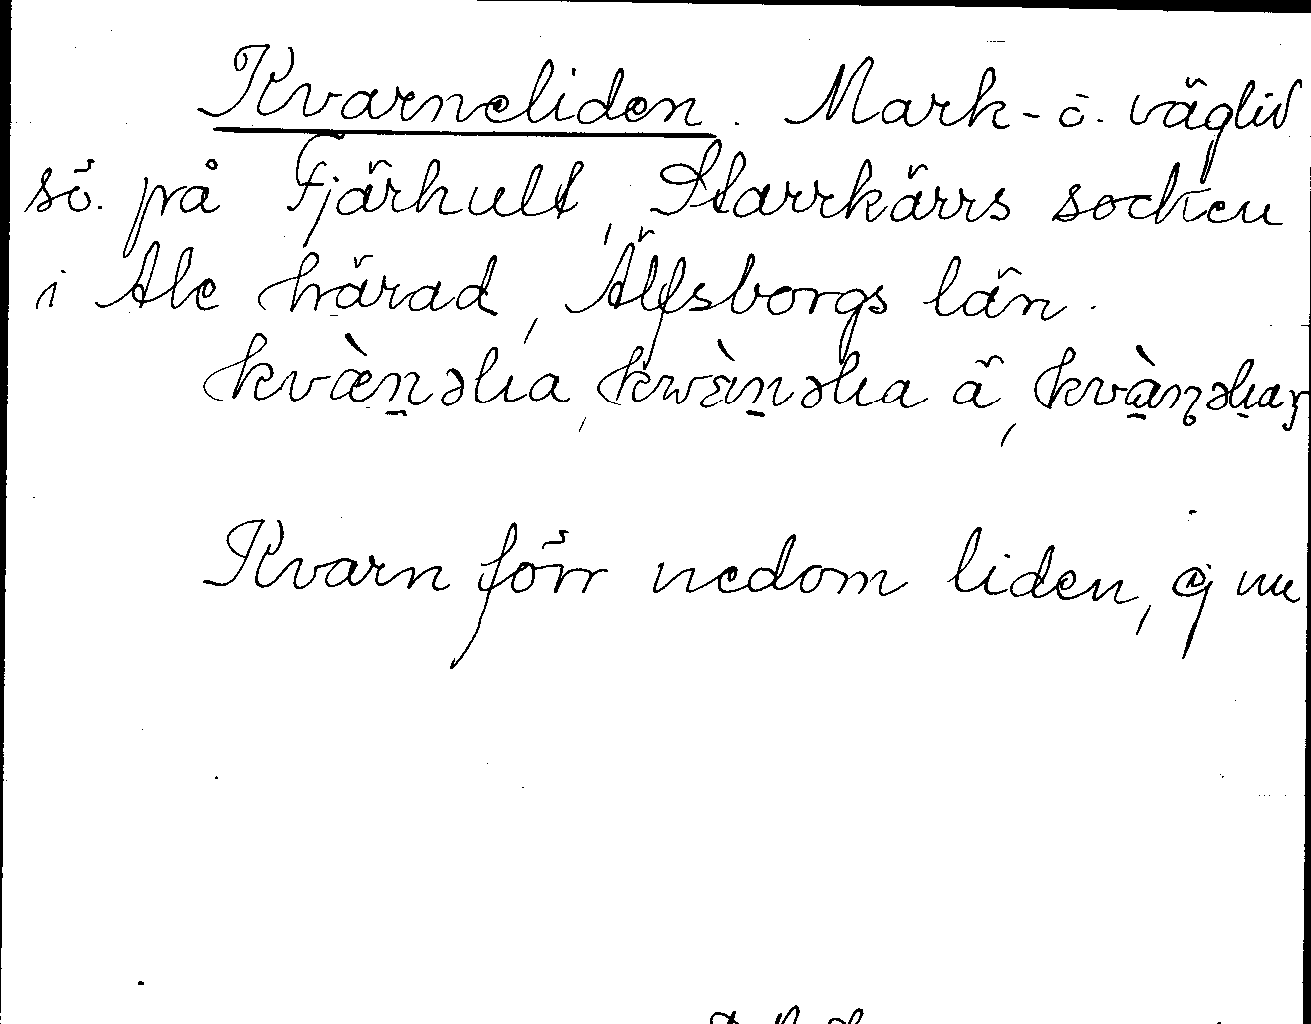 Kvarneliden. Mark- o. väglid
sö. på Fjärhult, Starrkärrs socken
i Ale härad, Älfsborgs län.
kvæ̀n̠əlıa, kwæ̀n̠əlıa ä,
Kvarn förr nedom liden, ej nu